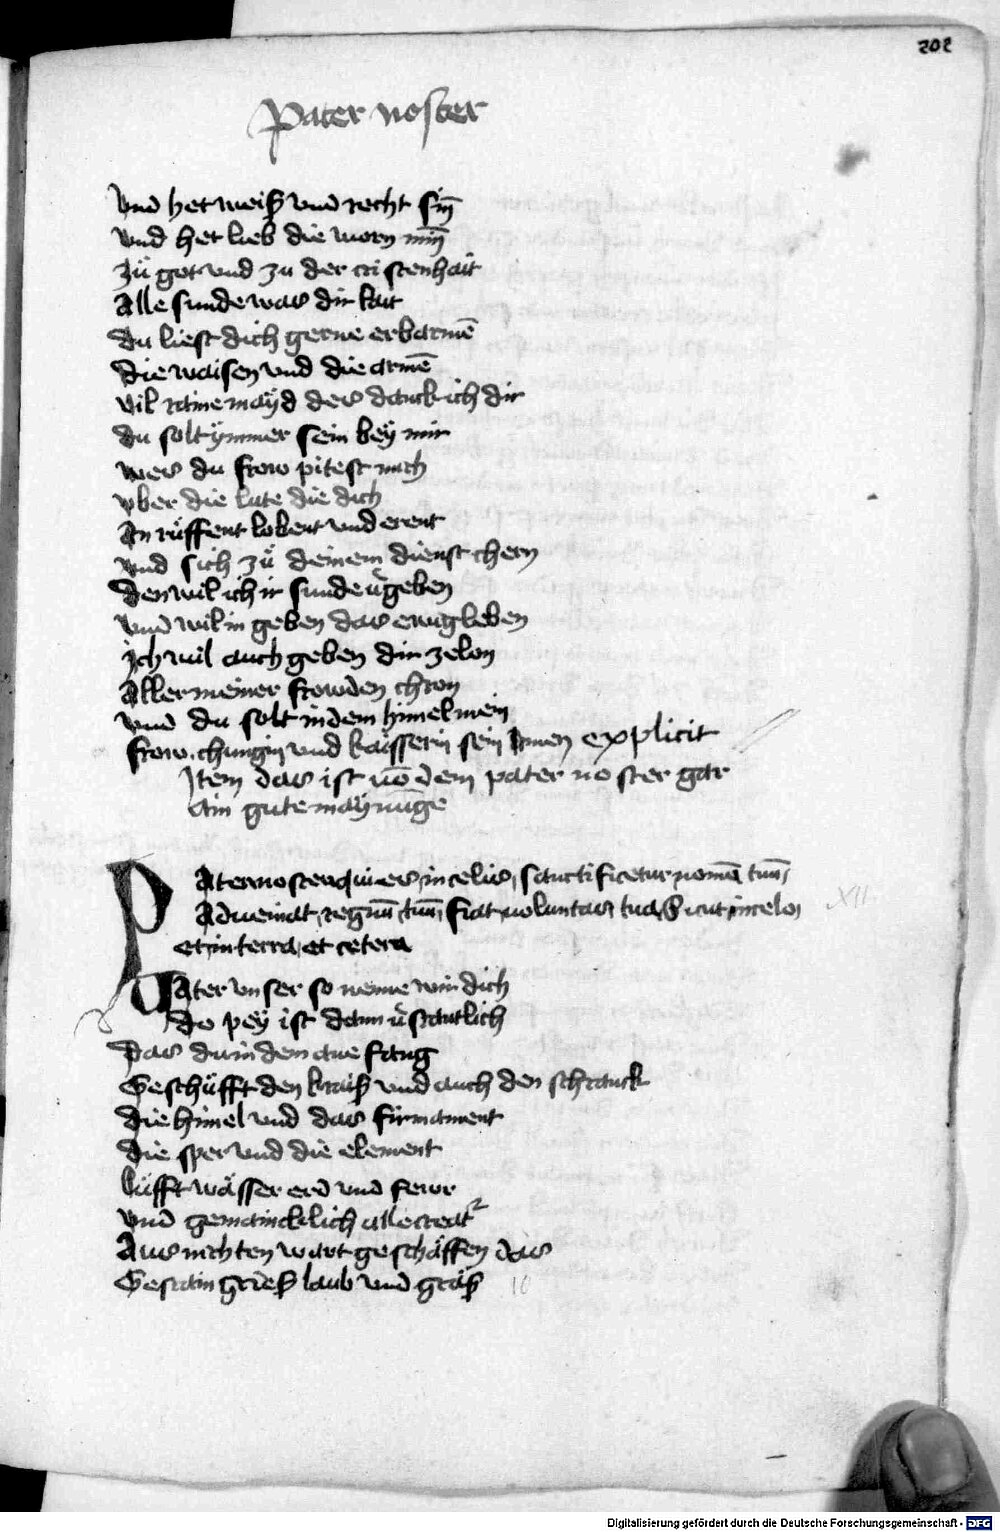 202
Pater noster
Vnd het weiß vnd recht sin̄
vnd het lieb die worn min̄
zu̎ got vnd zu der cristenhait
Alle sunde was dir lait
du liest dich gerne erbarmē
die waisen vnd die armē
vil raine mayd des danck ich dir
du solt ymmer sein bey mir
wes du frow pitest mich
vber die lute die dich
An ru̎ffent lobent vnd erent
vnd sich zu̎ deinem dienst chern
den wil ich ir sunde v̉geben
vnd wil in geben das ewig leben
Ich wil auch geben dir zelon
Aller meiner frowden chron
vnd du solt in dem himel mein
frow chungin vnd kaÿsserin sein Amen explicit
Item das ist vō dem pater noster gar
ain gute maÿnūge
PAter noster qui es in celis sanctificetur nomē tuū
Adueniat regnū tuū fiat voluntas tua Sicut in celo
et in terra et cetera
XII
VAter vnser so nenne wir dich
do peÿ ist dann v̉stantlich
das du in dem ane fang
Geschu̎fft den kraiß vnd auch den schranck
die himel vnd das firmament
die sper vnd die element
lu̎fft wa̎sser erd vnd fewr
vnd gemaincklich alle creatᷣ
Aus nichten wart gescha̎ffen das
Gestain grieß laub vnd graß
10
Digitalisierung gefördert durch die Deutsche Forschungsgemeinschaft - DFG